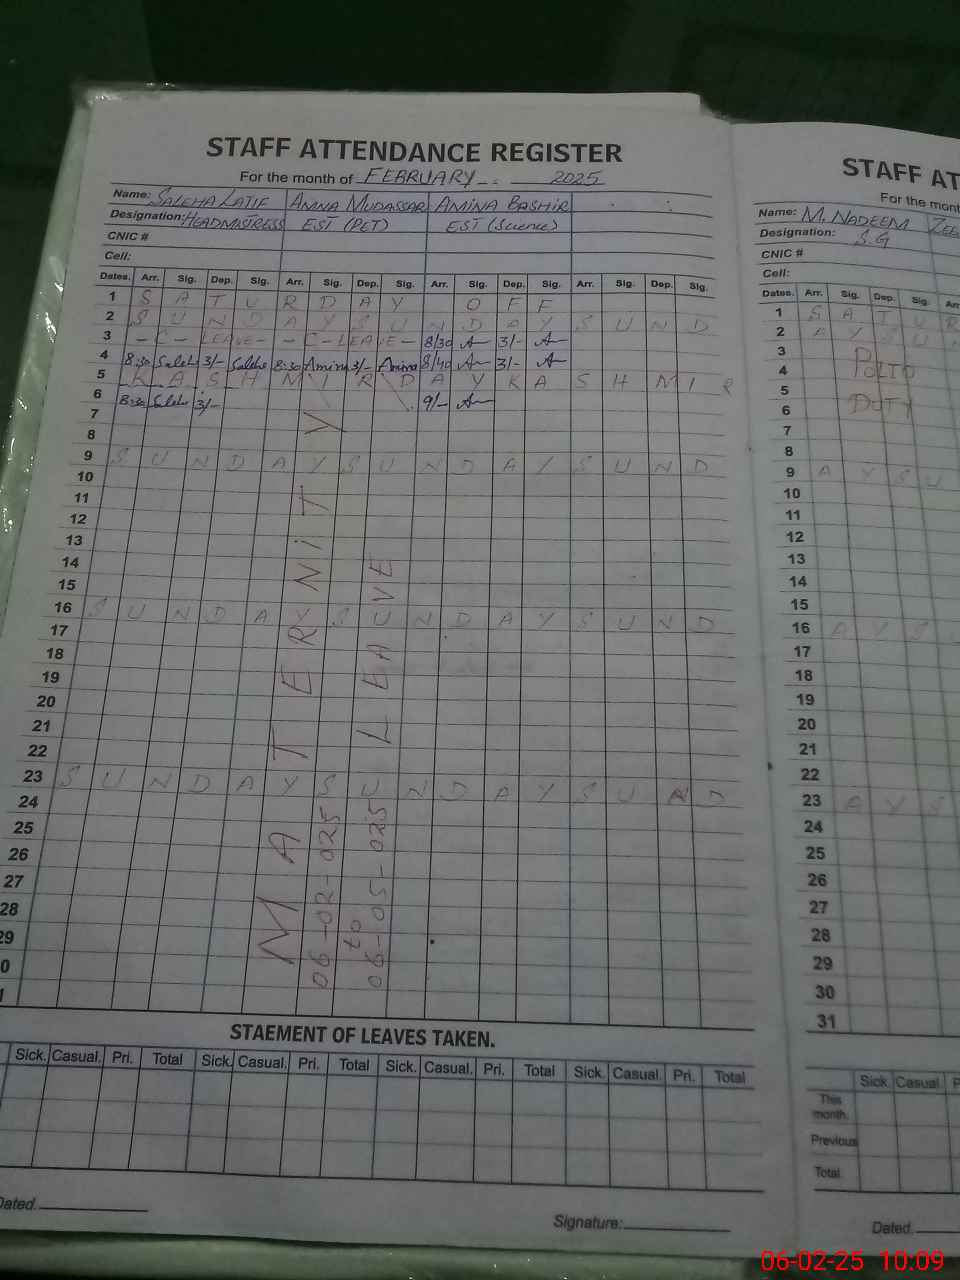 STAFF ATTENDANCE REGISTER
For the month of FEBRUARY 2025
Name: SALEHA LATIF AMNA MUDASSAR AMINA BASHIR
Designation: HEADMISTRESS EST (PET) EST (Science)
CNIC #
Cell:
Dates. Arr. Sig. Dep. Sig. Arr. Sig. Dep. Sig. Arr. Sig. Dep. Sig. Arr. Sig. Dep. Sig.
1 S A T U R D A Y O F F
2 S U N D A Y S U N D A Y S U N D
3 - C - LEAVE - - C - LEAVE - 8/30 3/-
4 8:30 Saleha 3/- Saleha 8:30 Amna 3/- Amna 8/40 3/-
5 K A S H M I R D A Y K A S H M I R
6 8:30 Saleha 3/- 9/-
7
8
9 S U N D A Y S U N D A Y S U N D
10
11
12
13
14
15
16 S U N D A Y S U N D A Y S U N D
17
18
19
20
21
22
23 S U N D A Y S U N D A Y S U N D
24
25
26
27
28
29
0
1
MATERNITY
LEAVE
06-02-025
to
06-05-025
STAEMENT OF LEAVES TAKEN.
Sick. Casual. Pri. Total Sick. Casual. Pri. Total Sick. Casual. Pri. Total Sick. Casual. Pri. Total
Dated.
Signature:
STAFF AT
For the mont
Name: M. NADEEM ZEE
Designation: S.G
CNIC #
Cell:
Dates. Arr. Sig. Dep. Sig. Arr
1 S A T U R
2 A Y S U N
3
4 POLIO
5
6 DUTY
7
8
9 A Y S U
10
11
12
13
14
15
16 A Y S
17
18
19
20
21
22
23 A Y S
24
25
26
27
28
29
30
31
Sick. Casual. P
This month.
Previous
Total
Dated.
06-02-25 10:09